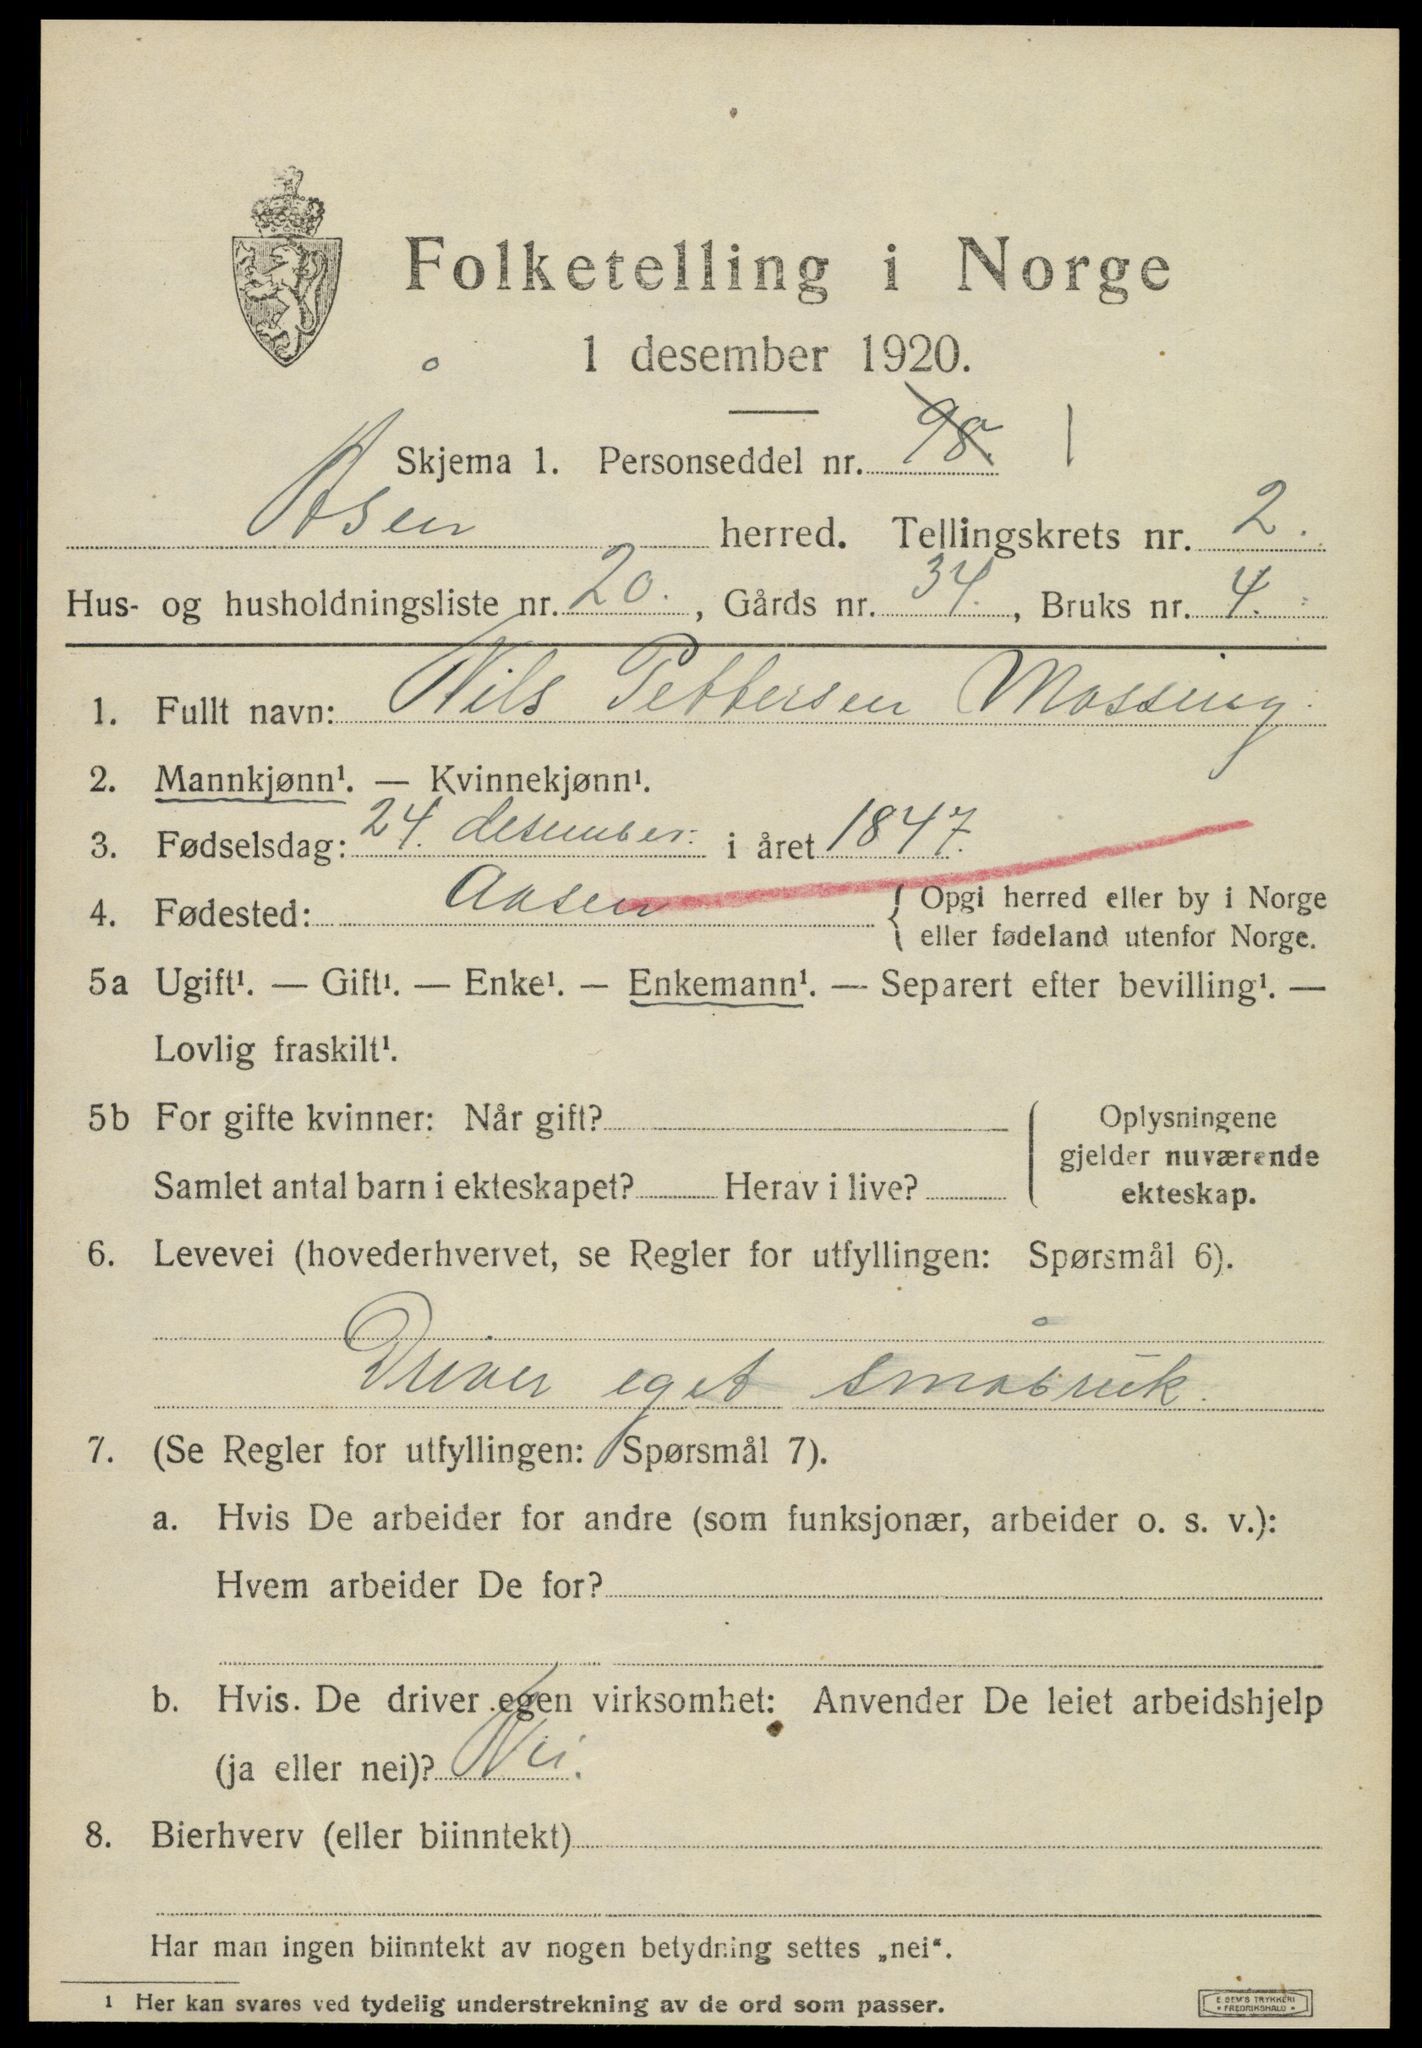 Folketelling i Norge
1 desember 1920.
Skjema 1. Personseddel nr. 98. 1
Åsen herred. Tellingskrets nr. 2.
Hus- og husholdningsliste nr. 20., Gårds nr. 34., Bruks nr. 4.
1. Fullt navn: Nils Pettersen Mossing.
2. Mannkjønn¹. — Kvinnekjønn¹.
3. Fødselsdag: 24. desember. i året 1847.
4. Fødested: Aasen { Opgi herred eller by i Norge
eller fødeland utenfor Norge.
5a Ugift¹. — Gift¹. — Enke¹. — Enkemann¹. — Separert efter bevilling¹. —
Lovlig fraskilt¹.
5b For gifte kvinner: Når gift? Oplysningene
gjelder nuværende
Samlet antal barn i ekteskapet? Herav i live? ekteskap.
6. Levevei (hovederhvervet, se Regler for utfyllingen: Spørsmål 6).
Driver eget småbruk.
7. (Se Regler for utfyllingen: Spørsmål 7).
a. Hvis De arbeider for andre (som funksjonær, arbeider o. s. v.):
Hvem arbeider De for?
b. Hvis. De driver egen virksomhet: Anvender De leiet arbeidshjelp
(ja eller nei)? Nei.
8. Bierhverv (eller biinntekt)
Har man ingen biinntekt av nogen betydning settes „nei“.
1 Her kan svares ved tydelig understrekning av de ord som passer.
E SEM'S TRYKKERI
• FREDRIKSHALD •